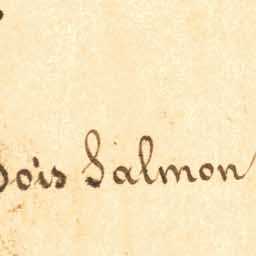 ois Salmon